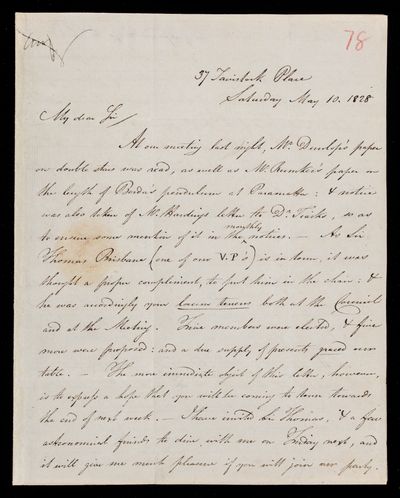 78
37 Tavistock Place
Saturday May 10. 1828
My dear Sir/
At our meeting last night, Mr. Dunlop's paper
on double stars was read, as well as Mr. Rumker's paper on
the length of Borda's pendulum at Paramatta: & notice
was also taken of Mr. Harding's letter to Dr. Tiarks, so as
monthly
to ensure some mention of it in the ^ notices. — As Sir
Thomas Brisbane (one of our V.P's) is in town, it was
thought a proper compliment, to put him in the chair: &
he was accordingly your locum tenens both at the Council
and at the Meeting. Five members were elected, & five
more were proposed: and a due supply of presents graced our
table. — The more immediate object of this letter, however,
is to express a hope that you will be coming to town towards
the end of next week. I have invited Sir Thomas, & a few
astronomical friends to dine with me on Friday next, and
it will give me much pleasure if you will join our party.